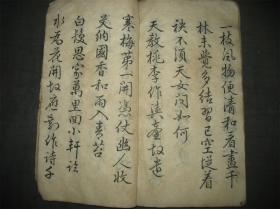 一枝風物便清和看盡千
林未覺多結習已空從着
袂不須天女問如何
天教桃李作輿臺故遣
寒梅第一開憑仗幽人收
艾納國香和雨入青苔
白髮思家萬里回小軒臨
水為花開故應剩作詩千